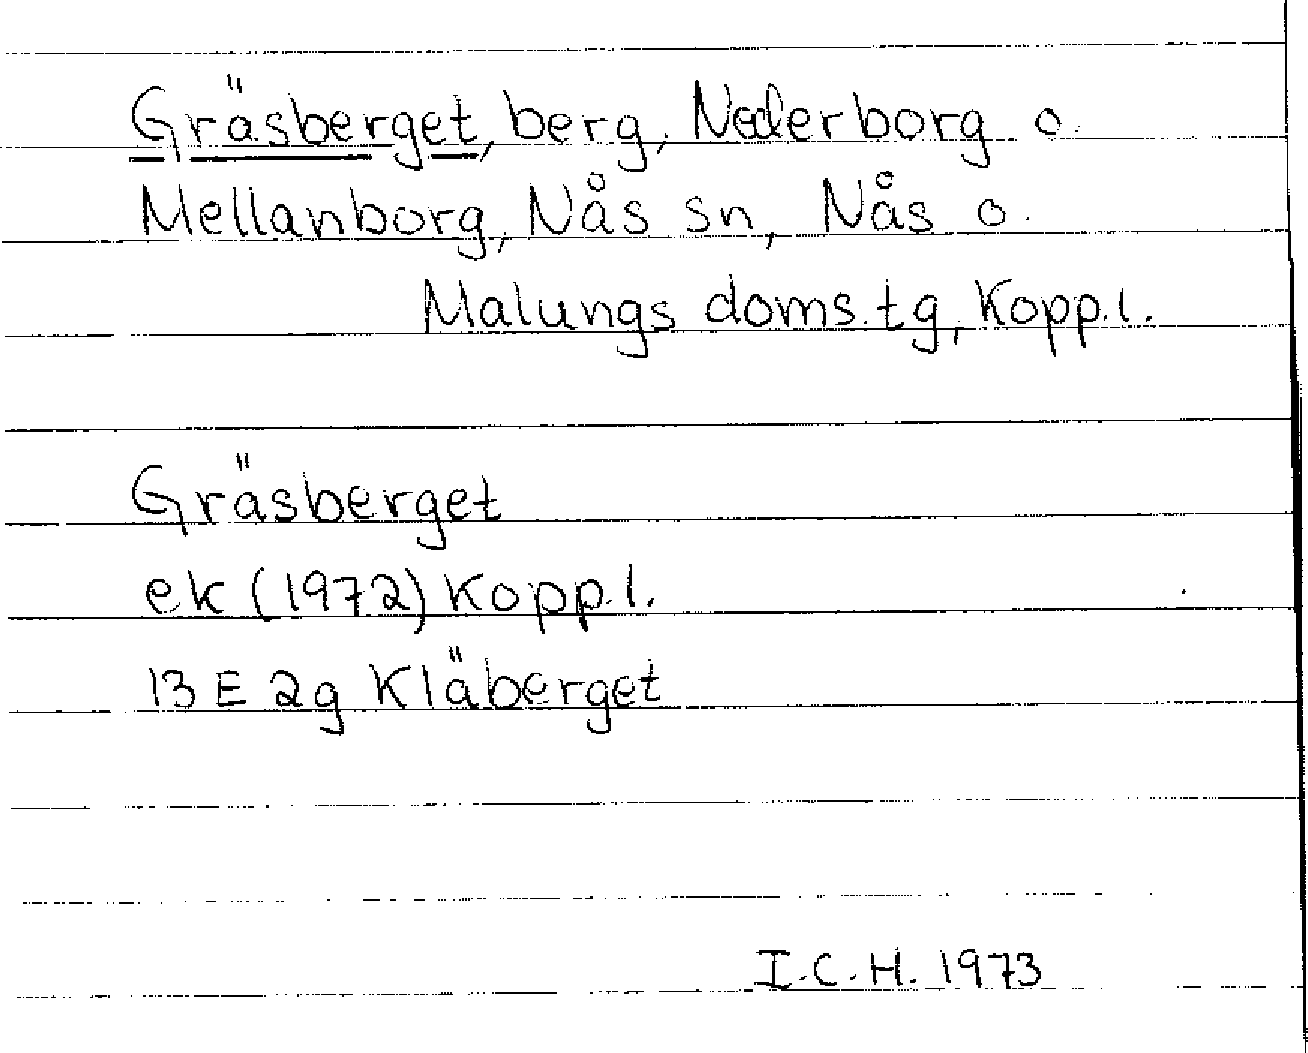 Gräsberget, berg, Nederborg o.
Mellanborg, Nås sn, Nås o.
Malungs doms.tg, Kopp.l.
Gräsberget
ek (1972) Kopp.l.
13 E 2g Kläberget
I.C.H. 1973